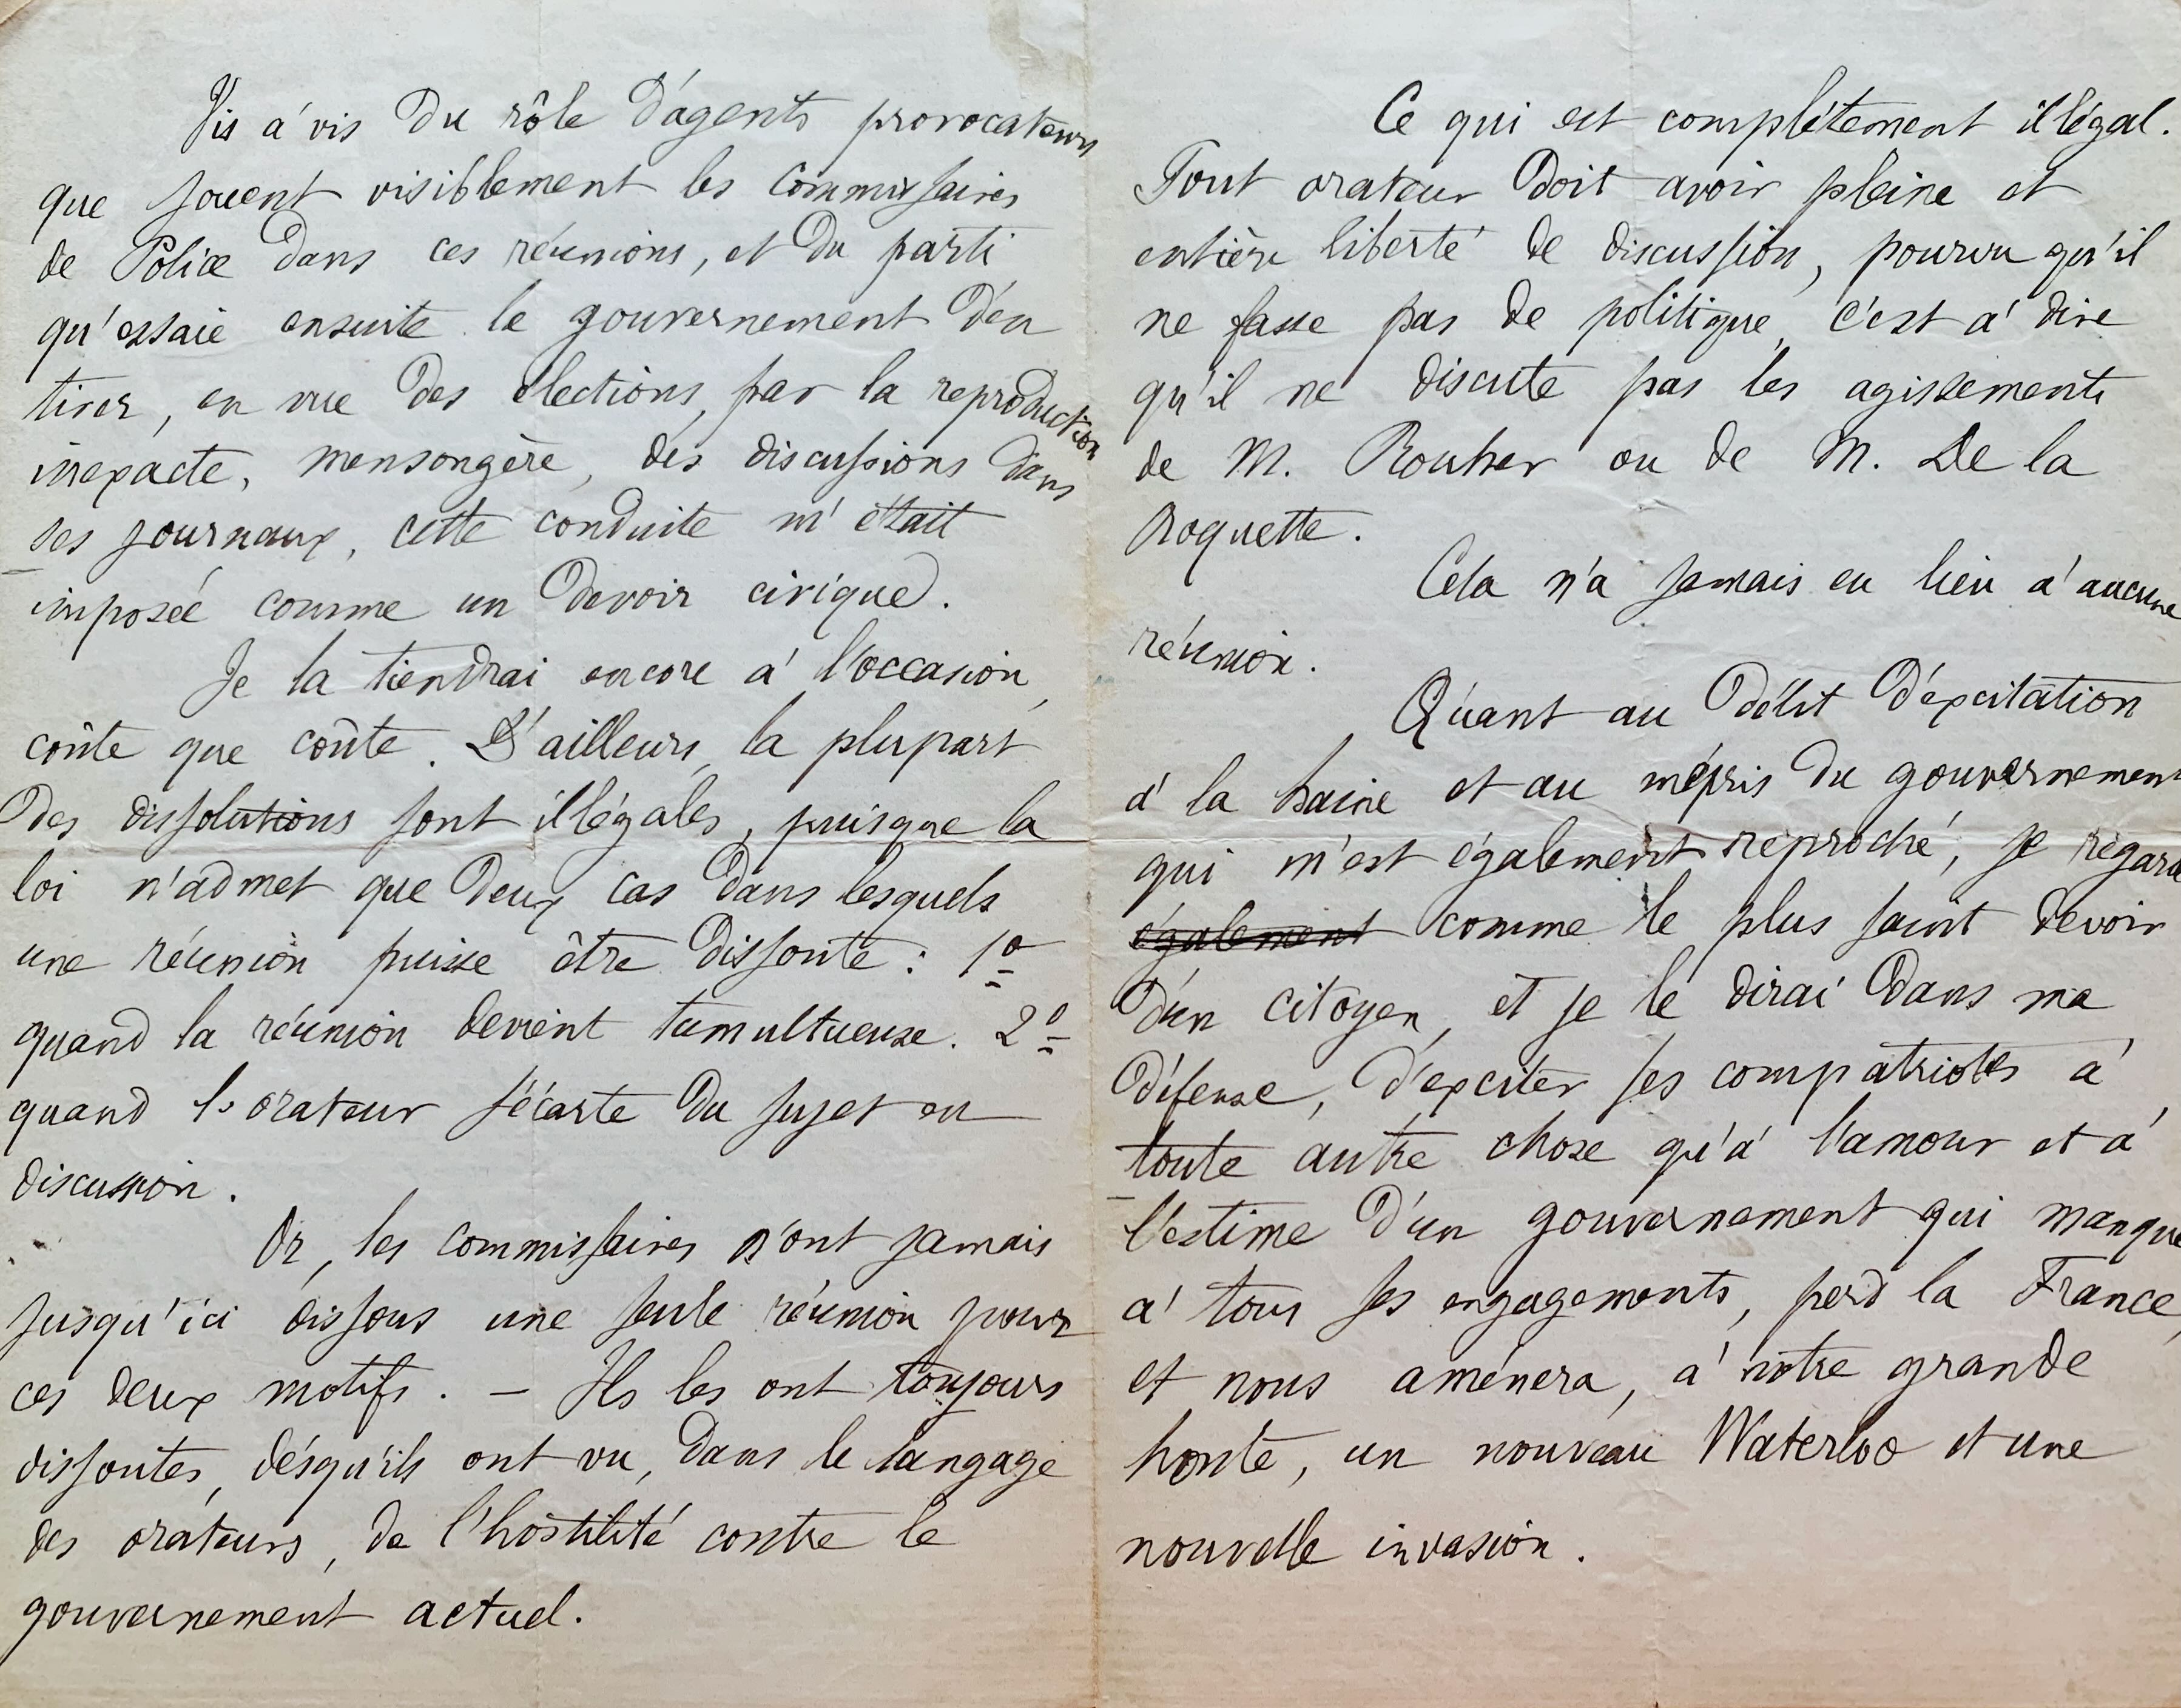 Vis à vis du rôle d'agents provocateurs
que jouent visiblement les commissaires
de Police dans ces réunions, et du parti
qu'essaie ensuite le gouvernement d'en
tirer, en vue des élections, par la reproduction
inexacte, mensongère, des discussions dans
ses journaux, cette conduite m'était
imposée comme un devoir civique.
Je la tiendrai encore à l'occasion,
coûte que coûte. D'ailleurs, la plupart
des dissolutions sont illégales, puisque la
loi n'admet que deux cas dans lesquels
une réunion puisse être dissoute : 1º
quand la réunion devient tumultueuse. 2º
quand l'orateur s'écarte du sujet en
discussion.
Or, les commissaires n'ont jamais
jusqu'ici dissous une seule réunion pour
ces deux motifs. — Ils les ont toujours
dissoutes, dèsqu'ils ont vu, dans le langage
des orateurs, de l'hostilité contre le
gouvernement actuel.
Ce qui est complètement illégal.
Tout orateur doit avoir pleine et
entière liberté de discussion, pourvu qu'il
ne fasse pas de politique, c'est à dire
qu'il ne discute pas les agissements
de M. Rouher ou de M. De la
Roquette.
Cela n'a jamais eu lieu à aucune
réunion.
Quant au délit d'excitation
à la haine et au mépris du gouvernement
qui m'est également reproché, je regarde
également comme le plus saint devoir
d'un citoyen, et je le dirai dans ma
défense, d'exciter ses compatriotes à
toute autre chose qu'à l'amour et à
l'estime d'un gouvernement qui manque
à tous ses engagements, perd la France,
et nous amènera, à notre grande
honte, un nouveau Waterloo et une
nouvelle invasion.